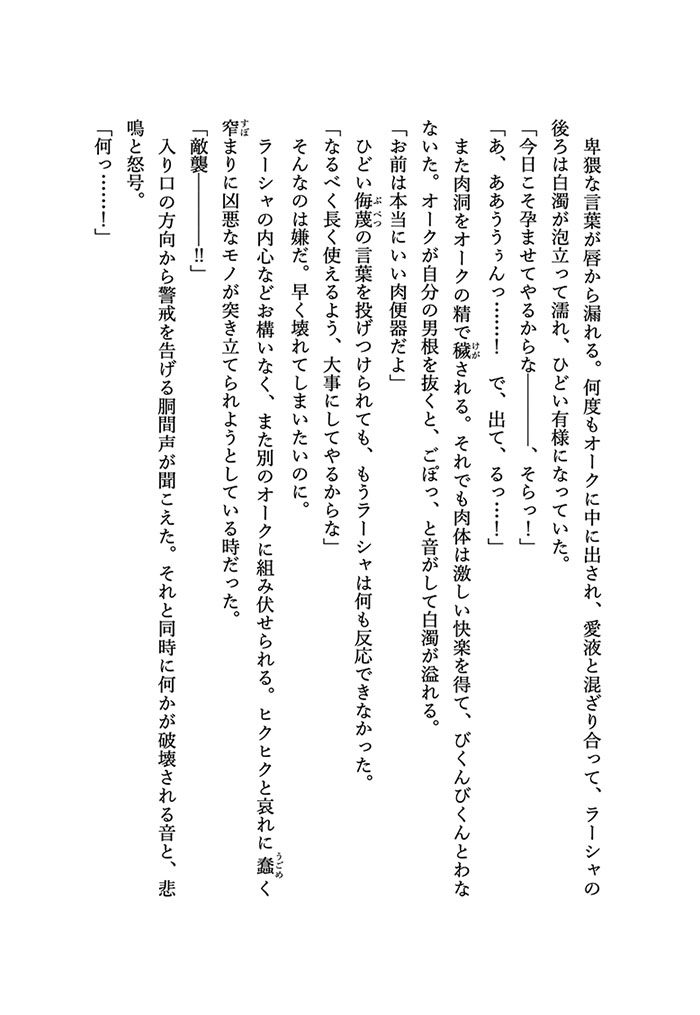 卑猥な言葉が唇から漏れる。何度もオークに中に出され、愛液と混ざり合って、ラーシャの
後ろは白濁が泡立って濡れ、ひどい有様になっていた。
「今日こそ孕ませてやるからな――――、そらっ！」
「あ、ああうぅんっ……！　で、出て、るっ…！」
また肉洞をオークの精で穢される。それでも肉体は激しい快楽を得て、びくんびくんとわな
ないた。オークが自分の男根を抜くと、ごぽっ、と音がして白濁が溢れる。
「お前は本当にいい肉便器だよ」
ひどい侮蔑の言葉を投げつけられても、もうラーシャは何も反応できなかった。
「なるべく長く使えるよう、大事にしてやるからな」
そんなのは嫌だ。早く壊れてしまいたいのに。
ラーシャの内心などお構いなく、また別のオークに組み伏せられる。ヒクヒクと哀れに蠢く
窄まりに凶悪なモノが突き立てられようとしている時だった。
「敵襲――――!!」
入り口の方向から警戒を告げる胴間声が聞こえた。それと同時に何かが破壊される音と、悲
鳴と怒号。
「何っ……！」